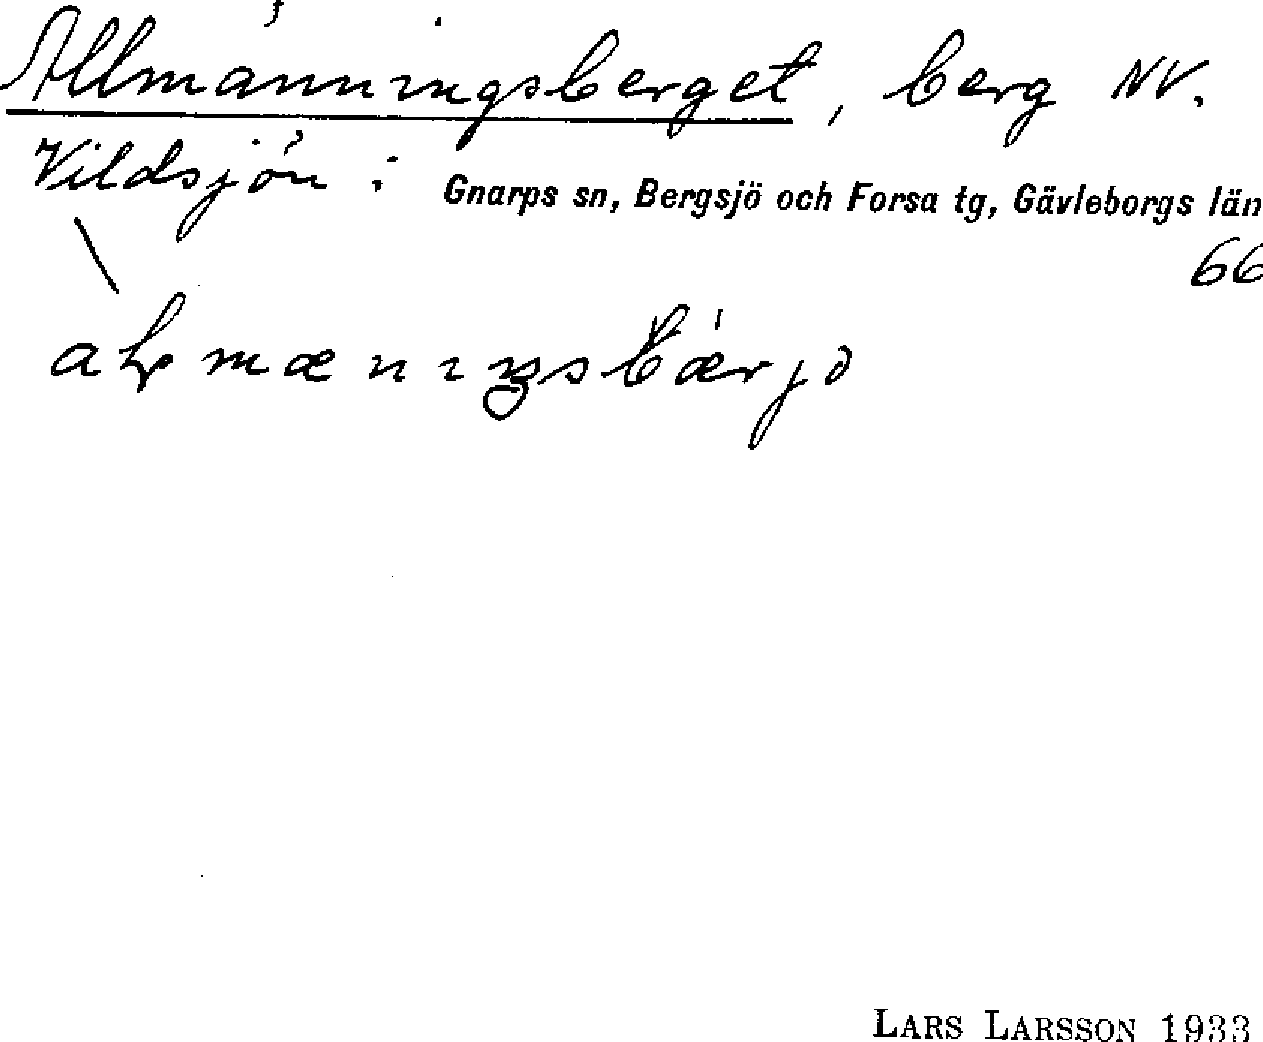 Allmänningsberget, berg NV.
Vildsjön i Gnarps sn, Bergsjö och Forsa tg, Gävleborgs län
66
LARS LARSSON 1933